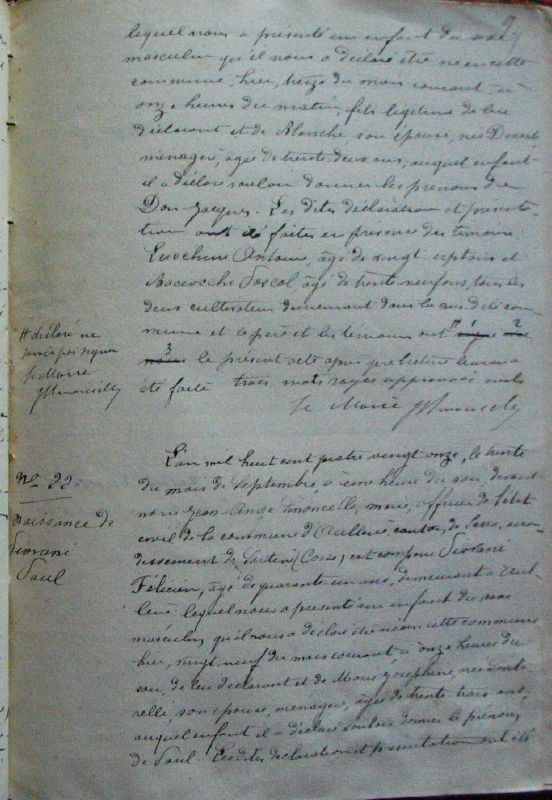 9
lequel nous a présenté un enfant du sexe
masculin qu'il nous a déclaré être né en cette
commune, hier, treize du mois courant, à
onze heures du matin, fils légitime de lui
déclarant et de Blanche, son épouse, née
ménagère, âgée de trente-deux ans, auquel enfant
il a déclaré vouloir donner les prénoms de
Don Jacques. Les dites déclaration et présenta-
tion ont été faites en présence des témoins
Antoine, âgé de vingt-sept ans et
Bacciochi Pascal âgé de trente-neuf ans, tous les
deux cultivateurs demeurant dans la susdite com-
mune et le père et les témoins ont # 1 2
# déclaré ne
savoir pas signer
Le Maire
3 le présent acte après que lecture leur en a
été faite trois mots rayés approuvés nuls
Le Maire
No 22
Naissance de
Giovani
Paul
L'an mil huit cent quatre vingt onze, le trente
du mois de septembre, à une heure du soir, devant
nous Jean-Ange, maire, officier de l'état
civil de la commune d', canton de, arron-
dissement de Sartène (Corse) est comparu Giovani
Félicien, âgé de quarante-un ans, demeurant à
lequel nous a présenté un enfant du sexe
masculin, qu'il nous a déclaré être né en cette commune
hier, vingt-neuf du mois courant à onze heures du
soir, de lui déclarant et de Marie Joséphine, née
son épouse, ménagère, âgée de trente-trois ans,
auquel enfant il a déclaré vouloir donner le prénom
de Paul. Les dites déclaration et présentation ont été